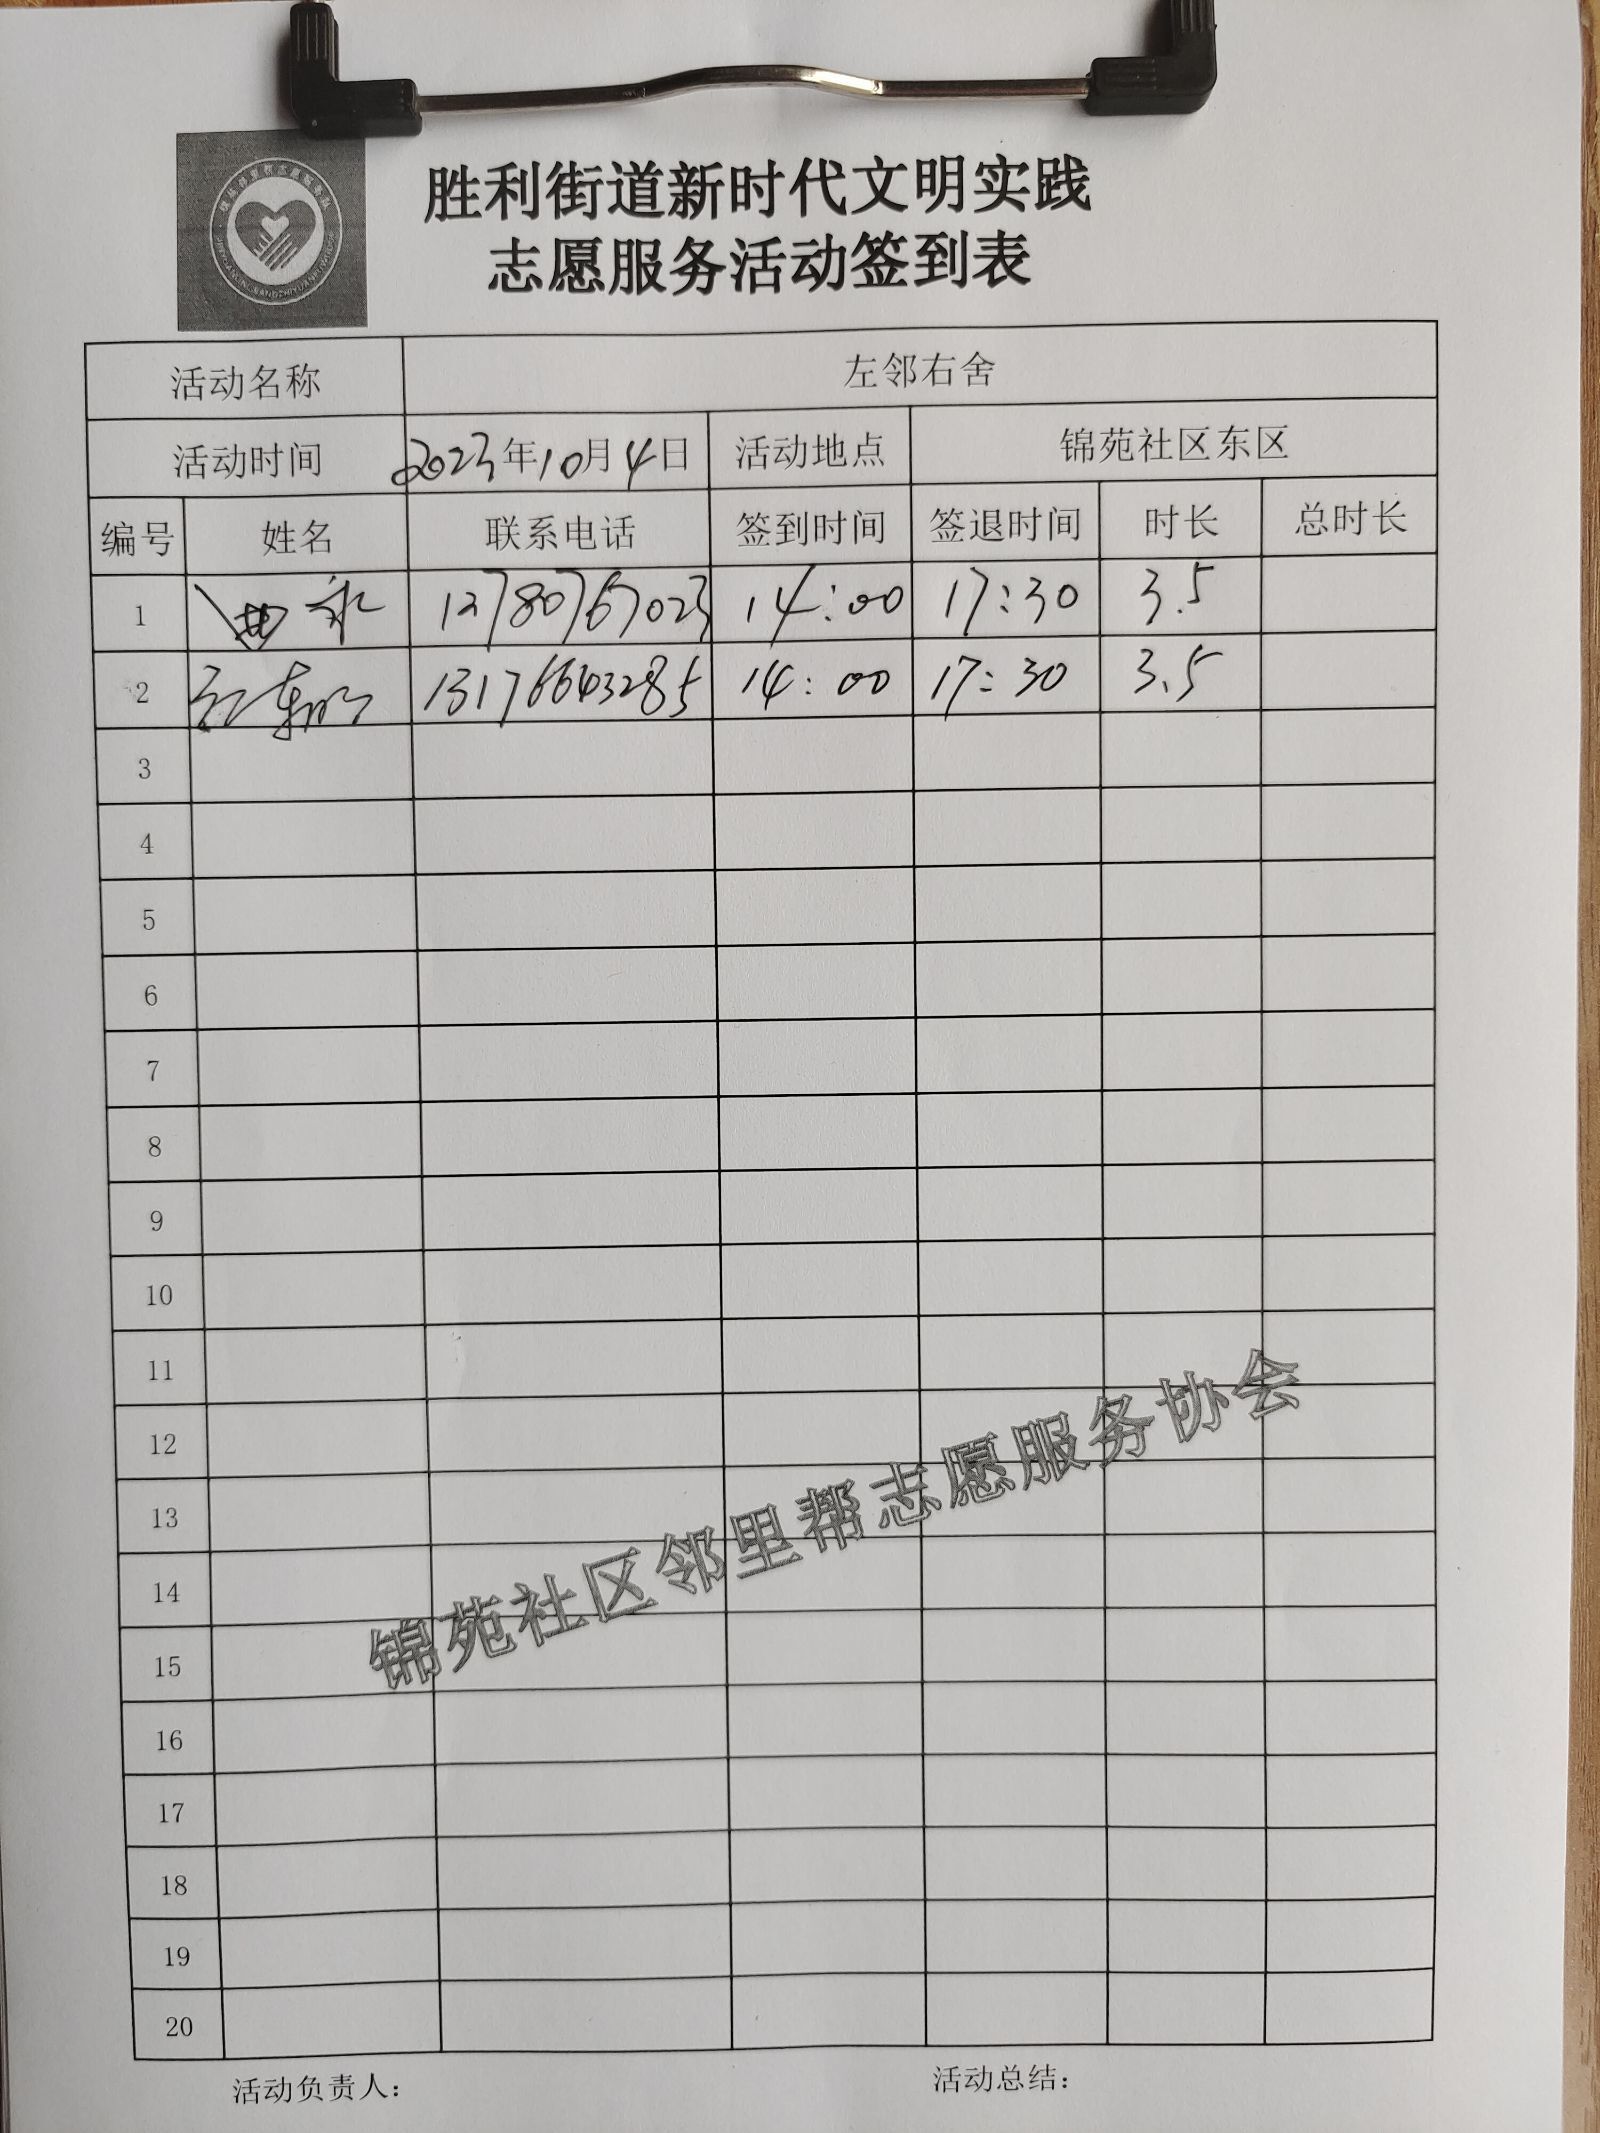 胜利街道新时代文明实践
志愿服务活动签到表
活动名称 左邻右舍
活动时间 2023年10月4日 活动地点 锦苑社区东区
编号 姓名 联系电话 签到时间 签退时间 时长 总时长
1 14:00 17:30 3.5
2 13176643285 14:00 17:30 3.5
3
4
5
6
7
8
9
10
11
12
13
14
15
16
17
18
19
20
锦苑社区邻里帮志愿服务协会
活动负责人: 活动总结: